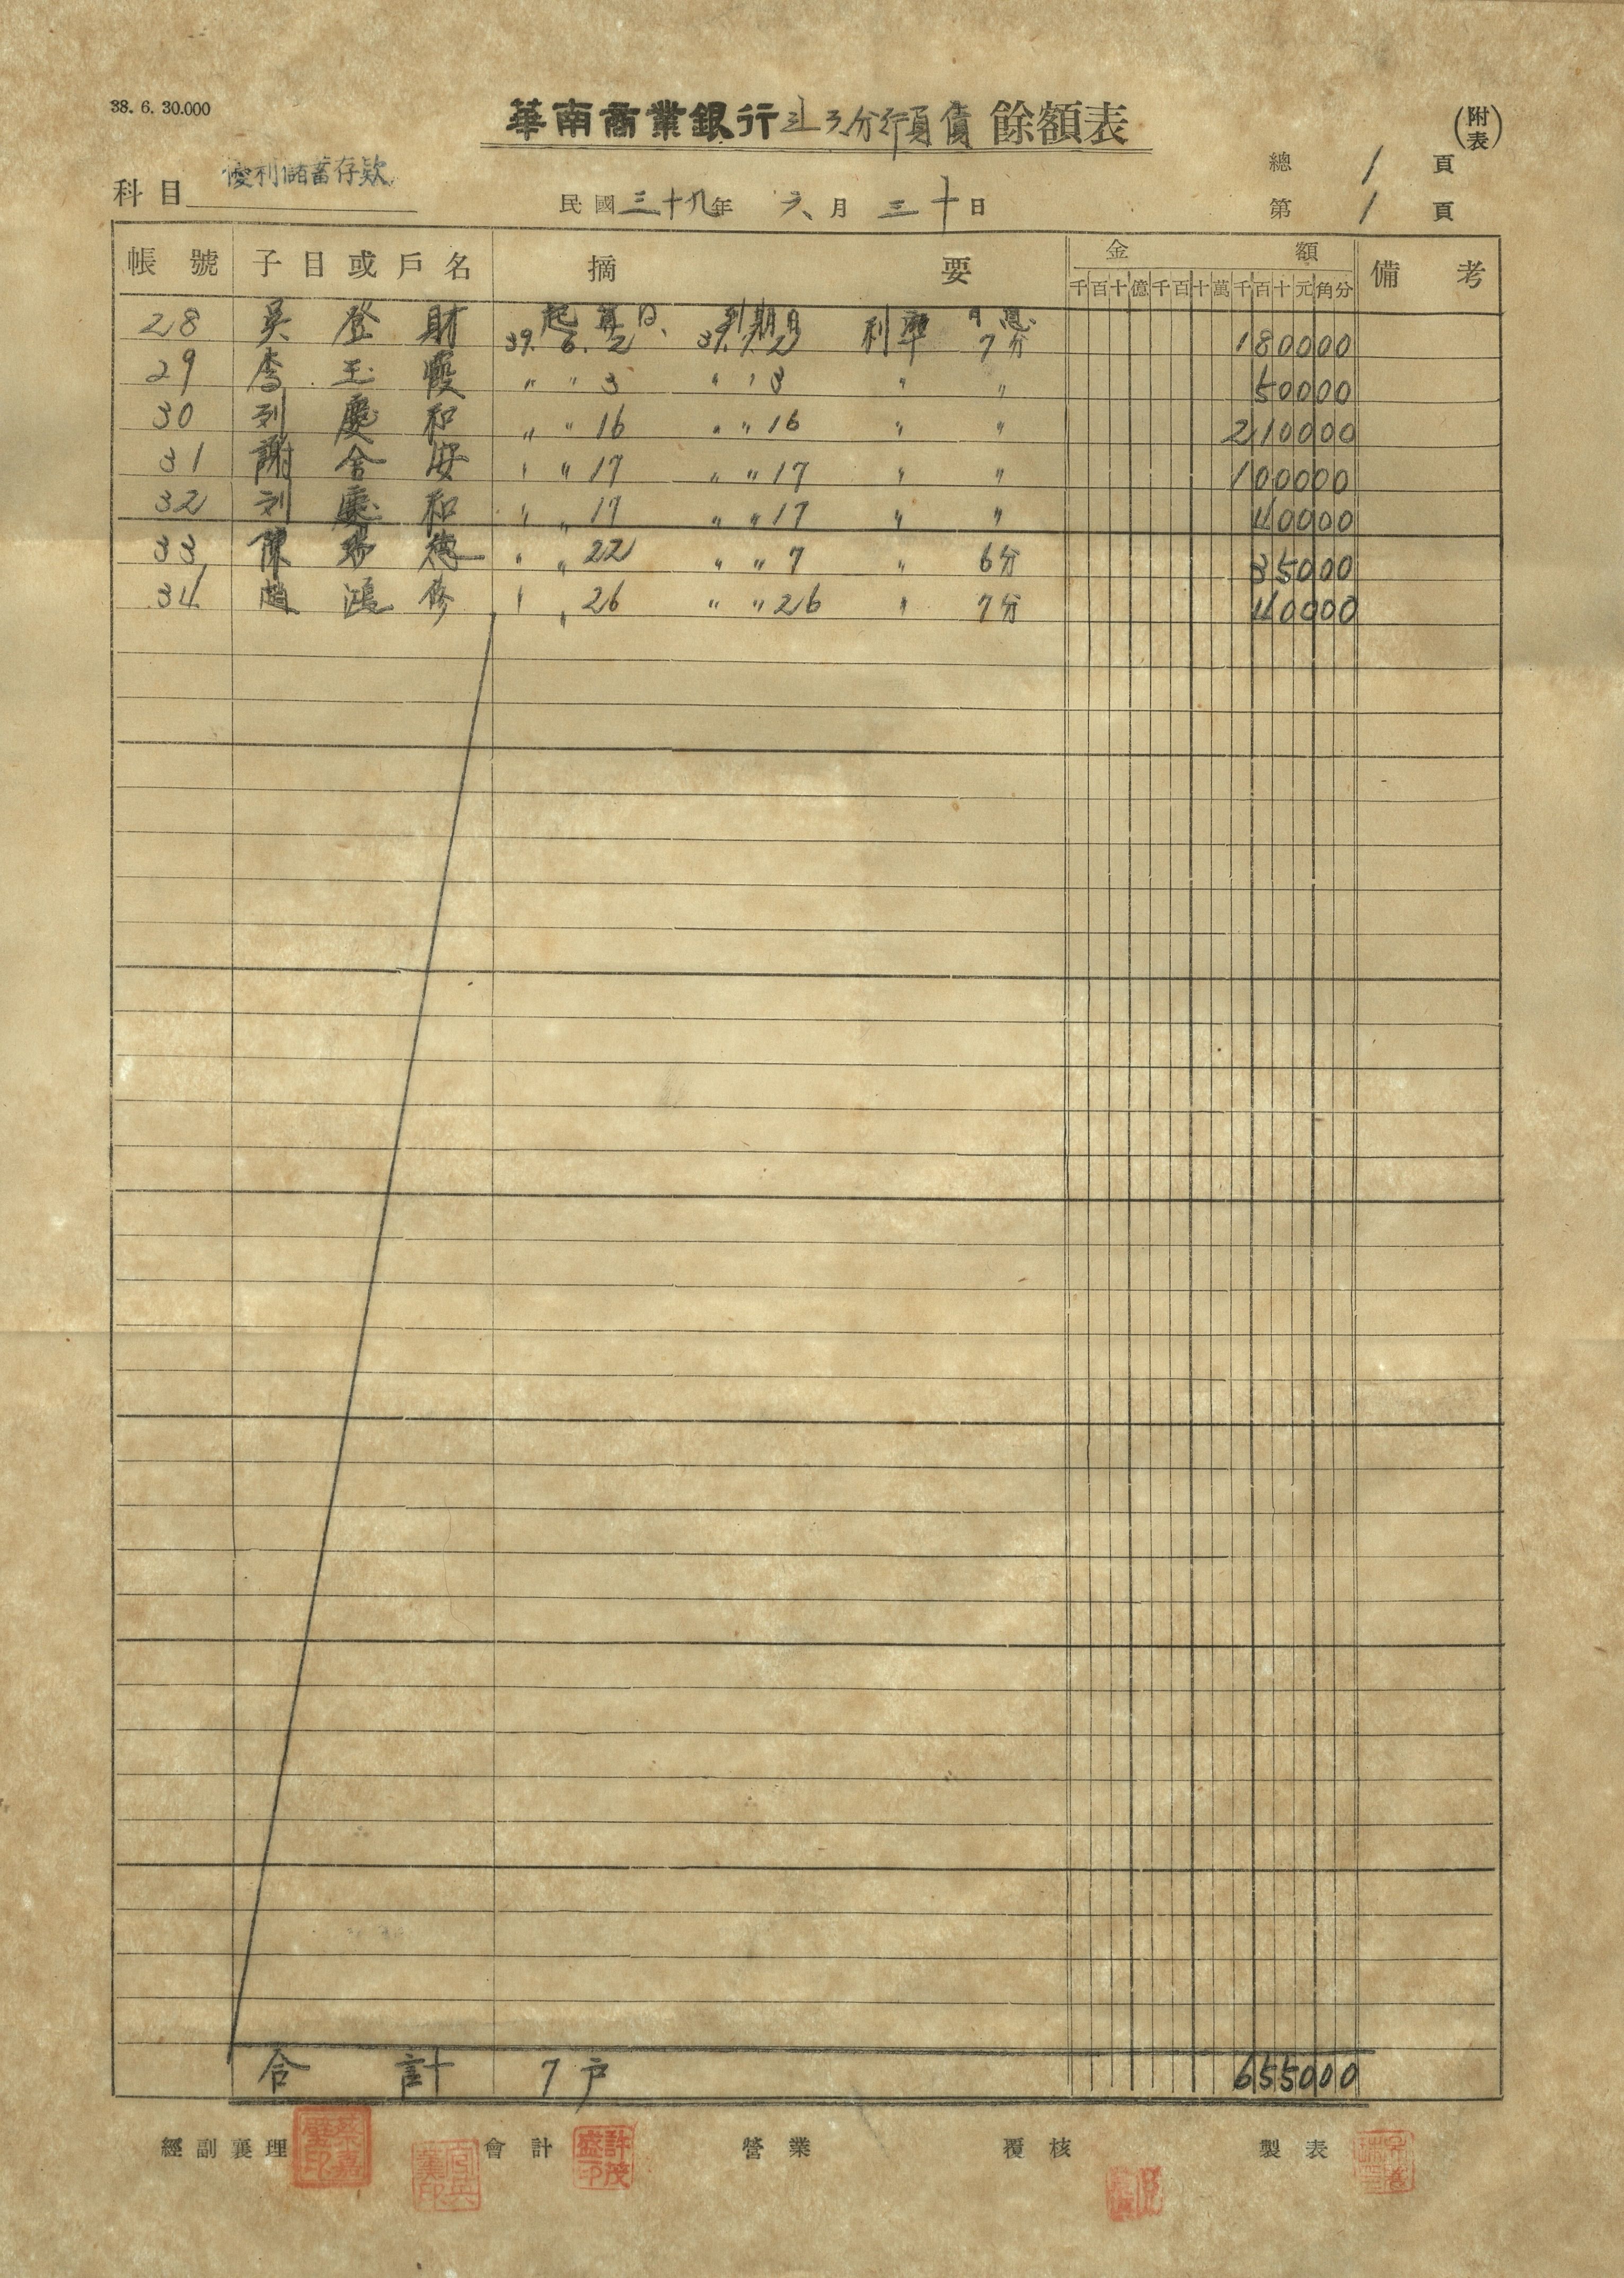 38. 6. 30.000
華南商業銀行 分行負債 餘額表
(附表)
科目 優利儲蓄存款
民國 三十九年 六月 三十日
總 1 頁
第 1 頁
帳號 子目或戶名 摘要 金額 備考
千百十億千百十萬千百十元角分
起算日 到期日 月息
28 吳登財 39. 6. 2 39. 7. 2 利率 7分 180000
29 李玉霞 〃 〃 3 〃 〃 3 〃 〃 50000
30 刘慶和 〃 〃 16 〃 〃 16 〃 〃 210000
31 謝舍安 〃 〃 17 〃 〃 17 〃 〃 100000
32 刘慶和 〃 〃 17 〃 〃 17 〃 〃 40000
33 陳 德 〃 〃 22 〃 〃 7 〃 6分 35000
34 趙鴻修 〃 〃 26 〃 〃 26 〃 7分 40000
合計 7戶 655000
經副襄理 會計 許茂盛印 營業 覆核 製表